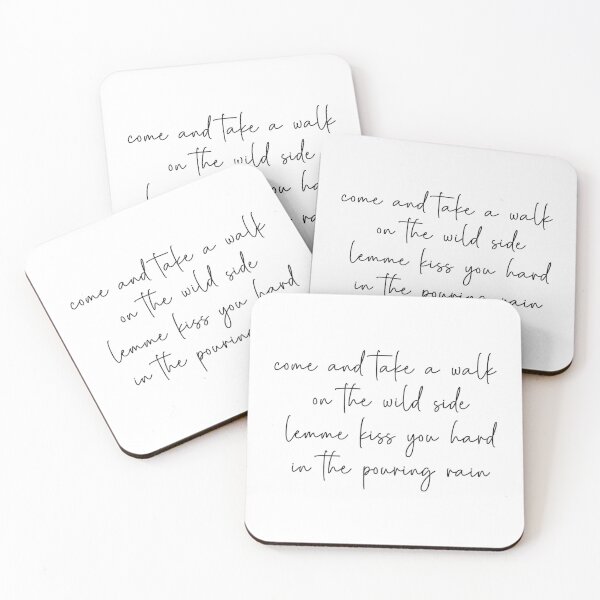 come and take a walk
on the wild side
come and take a walk
on the wild side
lemme kiss you hard
in the pouring rain
come and take a walk
on the wild side
lemme kiss you hard
in the pouring
come and take a walk
on the wild side
lemme kiss you hard
in the pouring rain